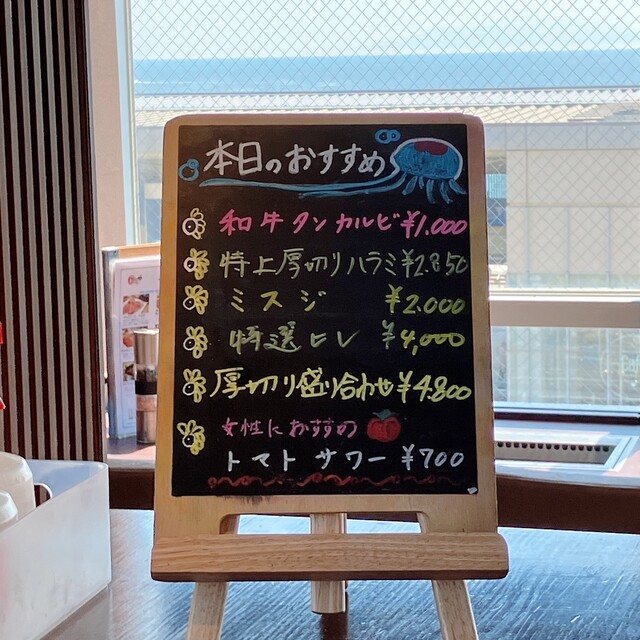 本日のおすすめ
和牛タンカルビ ¥1.000
特上厚切りハラミ ¥2.850
ミスジ ¥2.000
特選ヒレ ¥4,000
厚切り盛り合わせ ¥4.800
女性におすすめ
トマトサワー ¥700